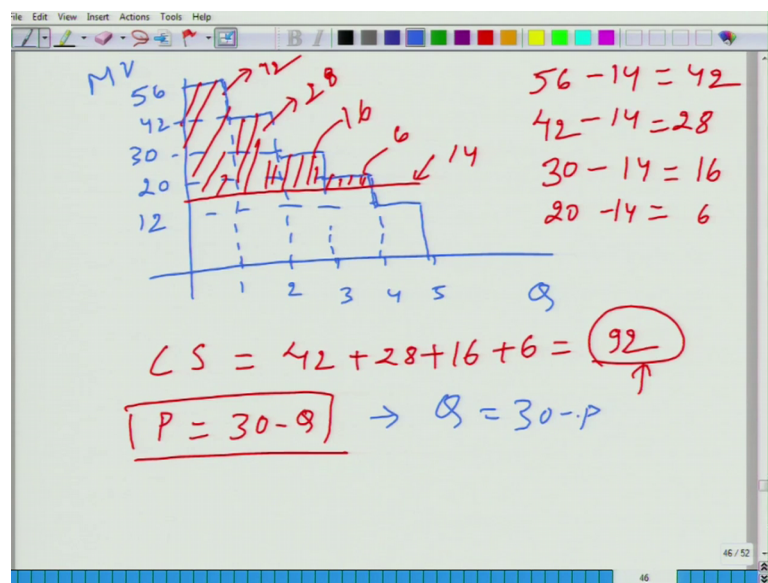 File Edit View Insert Actions Tools Help
B I
MV
56
42
30
20
12
42
28
16
6
14
1 2 3 4 5 Q
56 - 14 = 42
42 - 14 = 28
30 - 14 = 16
20 - 14 = 6
CS = 42 + 28 + 16 + 6 = 92
P = 30 - Q → Q = 30 - P
46 / 52
46